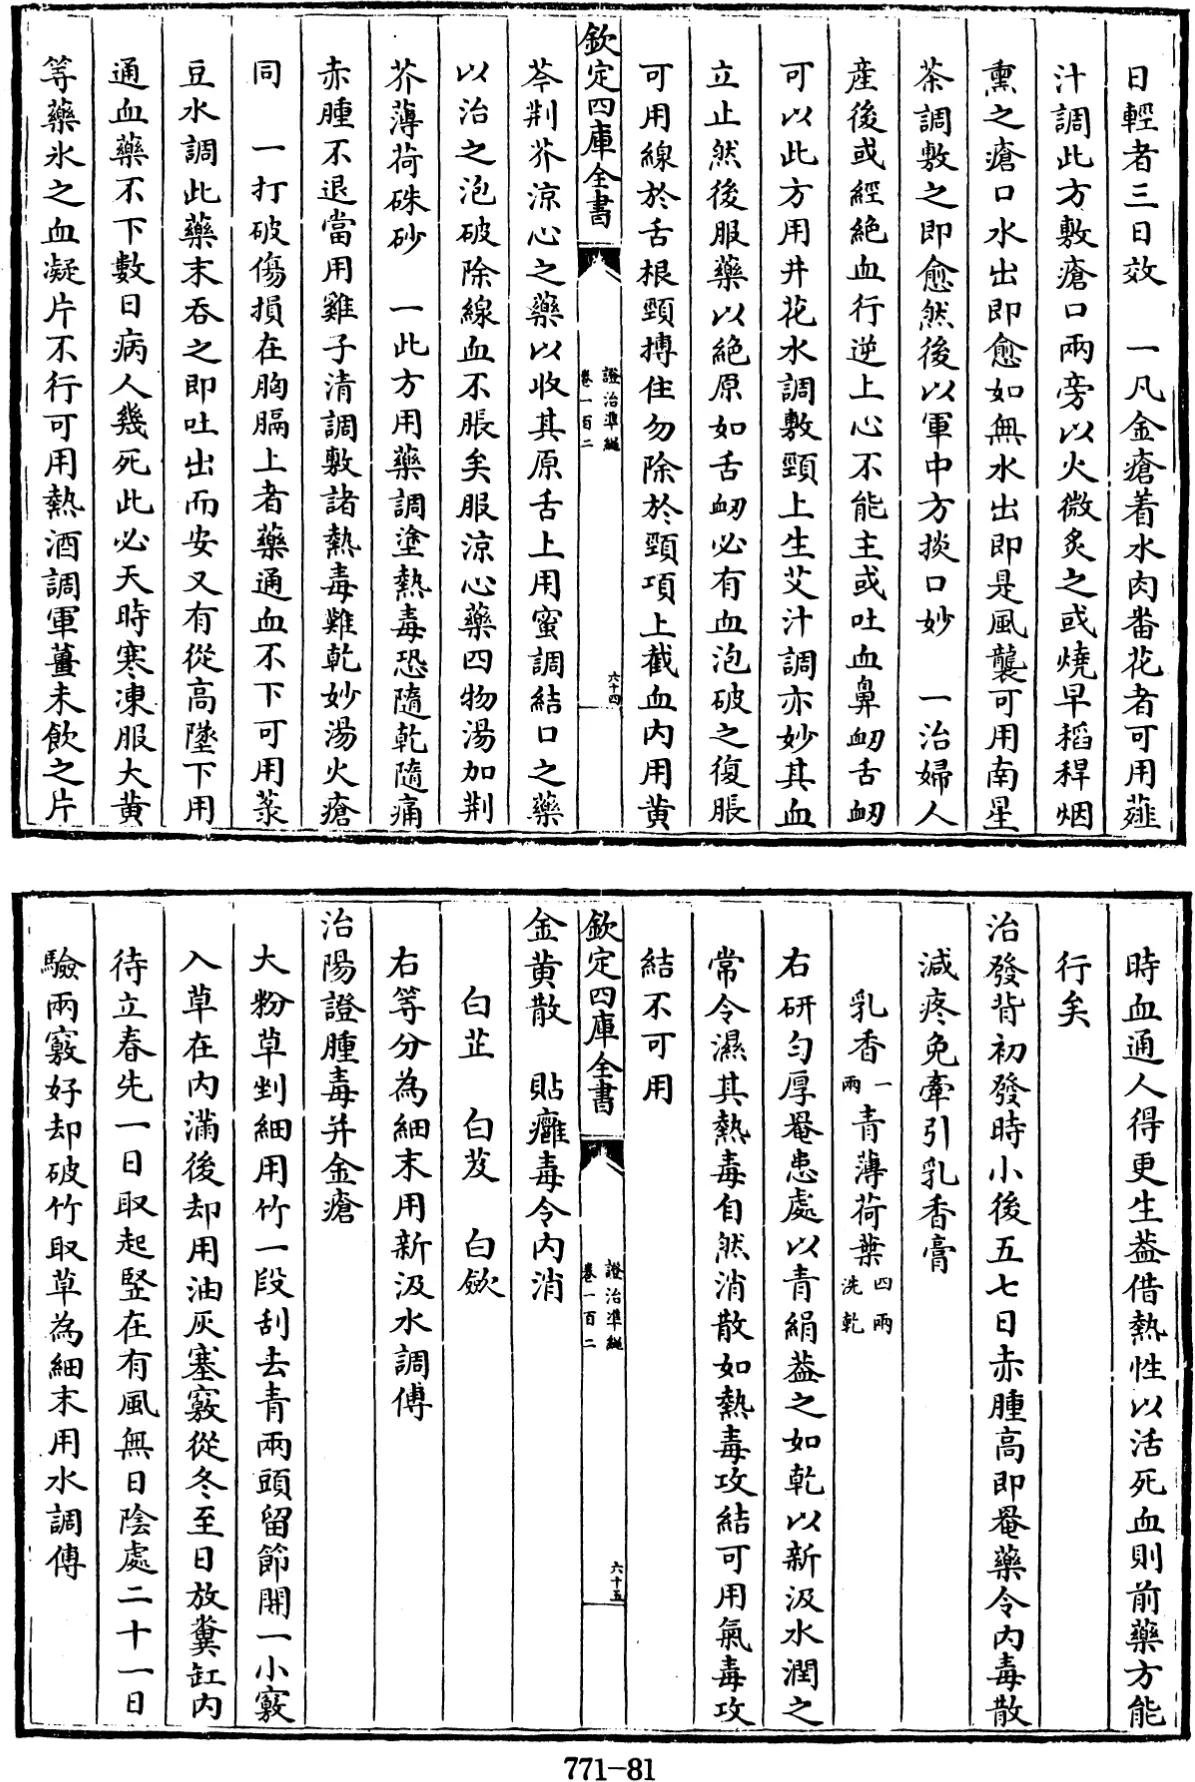 日輕者三日效　一凡金瘡着水肉畨花者可用薤
汁調此方敷瘡口兩旁以火微炙之或燒早稻稈烟
熏之瘡口水出即愈如無水出即是風襲可用南星
茶調敷之即愈然後以軍中方掞口妙　一治婦人
産後或經絶血行逆上心不能主或吐血鼻衂舌衂
可以此方用井花水調敷頸上生艾汁調亦妙其血
立止然後服藥以絶原如舌衂必有血泡破之復脹
可用線於舌根頸搏住勿除於頸項上截血内用黄
欽定四庫全書
證治準繩
卷一百二
六十四
芩荆芥凉心之藥以收其原舌上用蜜調結口之藥
以治之泡破除線血不脹矣服凉心藥四物湯加荆
芥薄荷硃砂　一此方用藥調塗熱毒恐隨乾隨痛
赤腫不退當用雞子清調敷諸熱毒難乾妙湯火瘡
同　一打破傷損在胸膈上者藥通血不下可用菉
豆水調此藥末吞之即吐出而安又有從高墜下用
通血藥不下數日病人幾死此必天時寒凍服大黄
等藥氷之血凝片不行可用熱酒調軍薑末飲之片
時血通人得更生葢借熱性以活死血則前藥方能
行矣
治發背初發時小後五七日赤腫高即罨藥令内毒散
減疼免牽引乳香膏
乳香一兩　青薄荷葉四兩洗乾
右研匀厚罨患處以青絹葢之如乾以新汲水潤之
常令濕其熱毒自然消散如熱毒攻結可用氣毒攻
結不可用
欽定四庫全書
證治準繩
卷一百二
六十五
金黄散　貼癰毒令内消
白芷　白芨　白歛
右等分為細末用新汲水調傅
治陽證腫毒并金瘡
大粉草剉細用竹一段刮去青兩頭留節開一小竅
入草在内滿後却用油灰塞竅從冬至日放糞缸内
待立春先一日取起竪在有風無日陰處二十一日
驗兩竅好却破竹取草為細末用水調傅
771-81